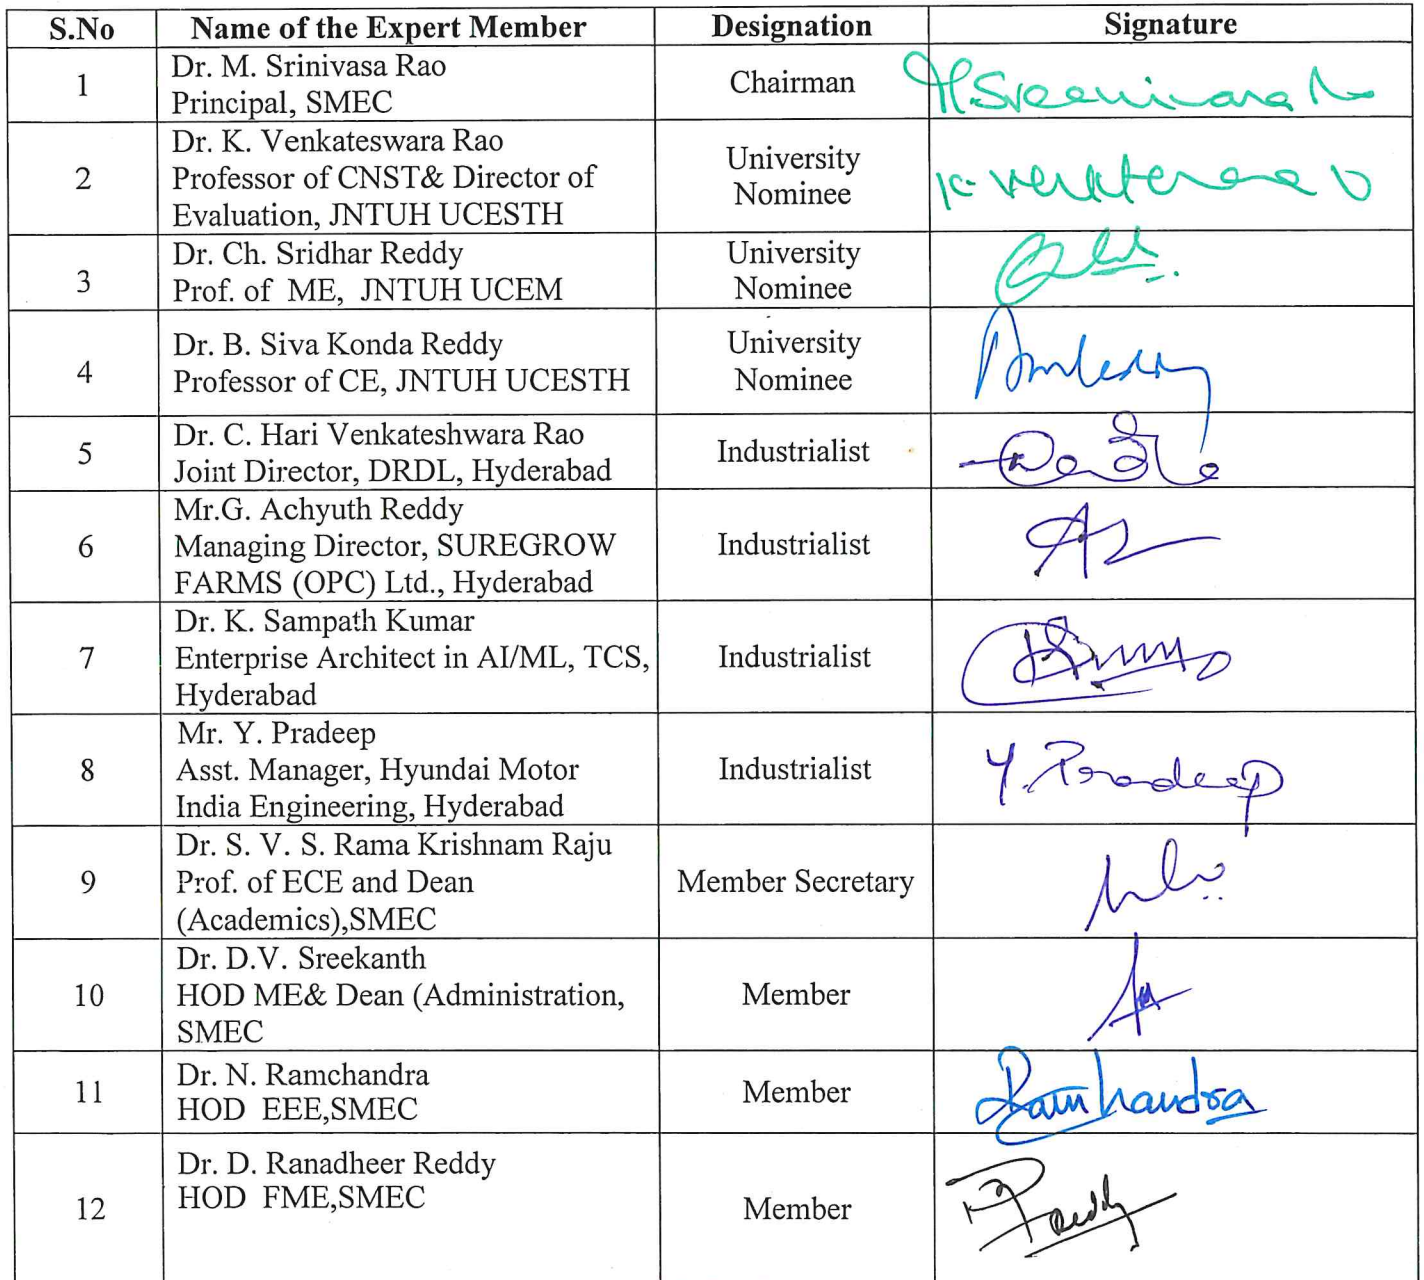 S.No Name of the Expert Member Designation Signature
1 Dr. M. Srinivasa Rao
Principal, SMEC Chairman M. Sreenivasa Rao
2 Dr. K. Venkateswara Rao
Professor of CNST& Director of
Evaluation, JNTUH UCESTH University
Nominee
3 Dr. Ch. Sridhar Reddy
Prof. of ME, JNTUH UCEM University
Nominee
4 Dr. B. Siva Konda Reddy
Professor of CE, JNTUH UCESTH University
Nominee
5 Dr. C. Hari Venkateshwara Rao
Joint Director, DRDL, Hyderabad Industrialist
6 Mr.G. Achyuth Reddy
Managing Director, SUREGROW
FARMS (OPC) Ltd., Hyderabad Industrialist
7 Dr. K. Sampath Kumar
Enterprise Architect in AI/ML, TCS,
Hyderabad Industrialist
8 Mr. Y. Pradeep
Asst. Manager, Hyundai Motor
India Engineering, Hyderabad Industrialist Y. Pradeep
9 Dr. S. V. S. Rama Krishnam Raju
Prof. of ECE and Dean
(Academics),SMEC Member Secretary
10 Dr. D.V. Sreekanth
HOD ME& Dean (Administration,
SMEC Member
11 Dr. N. Ramchandra
HOD EEE,SMEC Member Ramchandra
12 Dr. D. Ranadheer Reddy
HOD FME,SMEC Member Reddy